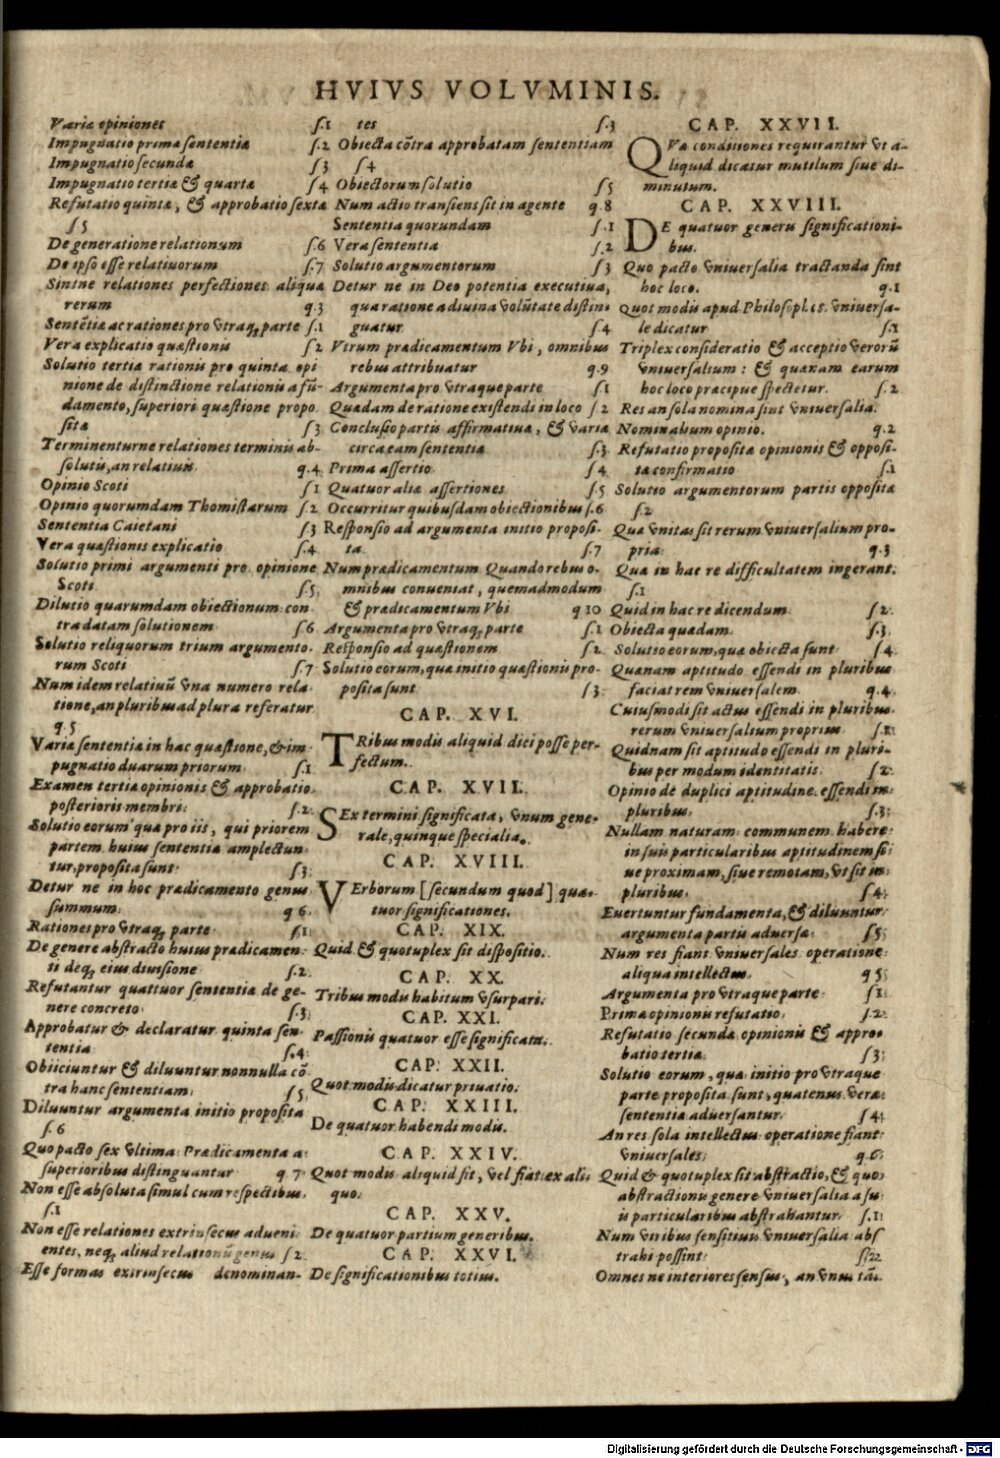 HVIVS VOLVMINIS.
Variæ opiniones ſ.1
Impugnatio primæ ſententiæ ſ.2
Impugnatio ſecundæ ſ3
Impugnatio tertiæ & quartæ ſ4
Refutatio quintæ, & approbatio ſextæ
ſ5
De generatione relationum ſ.6
De ipſo eſſe relatiuorum ſ.7
Sintne relationes perfectiones aliquæ
rerum q.3
Sentẽtiæ ac rationes pro vtraq; parte ſ.1
Vera explicatio quæſtionis ſ2
Solutio tertiæ rationis pro quinta opi
nione de diſtinctione relationis a fũ-
damento, ſuperiori quæſtione propo
ſitæ ſ3
Terminenturne relationes terminis ab-
ſolutis, an relatiuis q.4
Opinio Scoti ſ1
Opinio quorumdam Thomiſtarum ſ.2
Sententia Caietani ſ3
Vera quæſtionis explicatio ſ.4
Solutio primi argumenti pro opinione
Scoti ſ.5
Dilutio quarumdam obiectionum con
tra datam ſolutionem ſ.6
Solutio reliquorum trium argumento-
rum Scoti ſ.7
Num idem relatiuũ vna numero rela
tione, an pluribus ad plura referatur
q.5
Varia ſententia in hac quæſtione, & im
pugnatio duarum priorum ſ.1
Examen tertiæ opinionis & approbatio
poſterioris membri ſ.2
Solutio eorum qua pro iis, qui priorem
partem huius ſententiæ amplectun
tur, propoſita ſunt ſ3
Detur ne in hoc prædicamento genus
ſummum q6
Rationes pro vtraq; parte ſ.1
De genere abſtracto huius prædicamen-
ti deq; eius diuiſione ſ.2
Refutantur quattuor ſententiæ de ge-
nere concreto ſ.3
Approbatur & declaratur quinta ſen
tentia ſ.4
Obiiciuntur & diluuntur nonnulla cõ
tra hanc ſententiam ſ5
Diluuntur argumenta initio propoſita
ſ.6
Quo pacto ſex vltima Prædicamenta a
ſuperioribus diſtinguantur q.7
Non eſſe abſoluta ſimul cum reſpectibus
ſ.1
Non eſſe relationes extrinſecus adueni
entes, neq; aliud relationũ genus ſ2
Eſſe formas extrinſecus denominan-
tes ſ.3
Obiecta cõtra approbatam ſententiam
ſ4
Obiectorum ſolutio ſ5
Num actio tranſiens ſit in agente q.8
Sententia quorundam ſ.1
Vera ſententia ſ.2
Solutio argumentorum ſ3
Detur ne in Deo potentia executiua,
qua ratione a diuina volũtate diſtin-
guatur ſ4
Vtrum prædicamentum Vbi, omnibus
rebus attribuatur q.9
Argumenta pro vtraque parte ſ1
Quædam de ratione exiſtendi in loco ſ2
Concluſio partis affirmatiuæ, & variæ
circa eam ſententiæ ſ.3
Prima aſſertio ſ4
Quatuor aliæ aſſertiones ſ.5
Occurritur quibuſdam obiectionibus ſ.6
Reſponſio ad argumenta initio propoſi-
ta ſ.7
Num prædicamentum Quando rebus o-
mnibus conueniat, quemadmodum
& prædicamentum Vbi q10
Argumenta pro vtraq; parte ſ.1
Reſponſio ad quæſtionem ſ2
Solutio eorum, quæ initio quæſtionis pro-
poſita ſunt ſ3
CAP. XVI.
TRibus modis aliquid dici poſſe per-
fectum.
CAP. XVII.
SEx termini ſignificata, vnum gene-
rale, quinque ſpecialia.
CAP. XVIII.
VErborum [ſecundum quod] qua-
tuor ſignificationes.
CAP. XIX.
Quid & quotuplex ſit diſpoſitio.
CAP. XX.
Tribus modis habitum vſurpari.
CAP. XXI.
Paſſionis quatuor eſſe ſignificata.
CAP. XXII.
Quot modis dicatur priuatio.
CAP. XXIII.
De quatuor habendi modis.
CAP. XXIV.
Quot modis aliquid ſit, vel fiat ex ali-
quo.
CAP. XXV.
De quatuor partium generibus.
CAP. XXVI.
De ſignificationibus totius.
CAP. XXVII.
QVæ conditiones requirantur vt a-
liquid dicatur mutilum ſiue di-
minutum.
CAP. XXVIII.
DE quatuor generis ſignificationi-
bus.
Quo pacto vniuerſalia tractanda ſint
hoc loco. q.1
Quot modis apud Philoſophos vniuerſa-
le dicatur ſ.1
Triplex conſideratio & acceptio verorũ
vniuerſalium: & quænam earum
hoc loco præcipue ſpectetur. ſ.2
Res an ſola nomina ſint vniuerſalia.
Nominalium opinio. q.2
Refutatio propoſitæ opinionis & oppoſi-
tæ confirmatio ſ.1
Solutio argumentorum partis oppoſitæ
ſ.2
Quæ vnitas ſit rerum vniuerſalium pro-
pria q.3
Quæ in hac re difficultatem ingerant.
ſ.1
Quid in hac re dicendum ſ2
Obiecta quædam ſ.3
Solutio eorum, quæ obiecta ſunt ſ4
Quænam aptitudo eſſendi in pluribus
faciat rem vniuerſalem q.4
Cuiuſmodi ſit actus eſſendi in pluribus
rerum vniuerſalium proprius ſ.1
Quidnam ſit aptitudo eſſendi in pluri-
bus per modum identitatis ſ2
Opinio de duplici aptitudine eſſendi in
pluribus ſ.3
Nullam naturam communem habere
in ſuis particularibus aptitudinem ſi
ue proximam, ſiue remotam, vt ſit in
pluribus ſ4
Euertuntur fundamenta, & diluuntur
argumenta partis aduerſæ ſ5
Num res fiant vniuerſales operatione
aliqua intellectus q5
Argumenta pro vtraque parte ſ1
Prima opinionis refutatio ſ.2
Refutatio ſecundæ opinionis & appro-
batio tertiæ ſ3
Solutio eorum, quæ initio pro vtraque
parte propoſita ſunt, quatenus veræ
ſententiæ aduerſantur ſ4
An res ſola intellectus operatione fiant
vniuerſales q.6
Quid & quotuplex ſit abſtractio, & quo
abſtractionis genere vniuerſalia a ſu
is particularibus abſtrahantur ſ.1
Num viribus ſenſitiuis vniuerſalia abſ
trahi poſſint ſ.2
Omnes ne interiores ſenſus, an vnus tã-
Digitalisierung gefördert durch die Deutsche Forschungsgemeinschaft - DFG